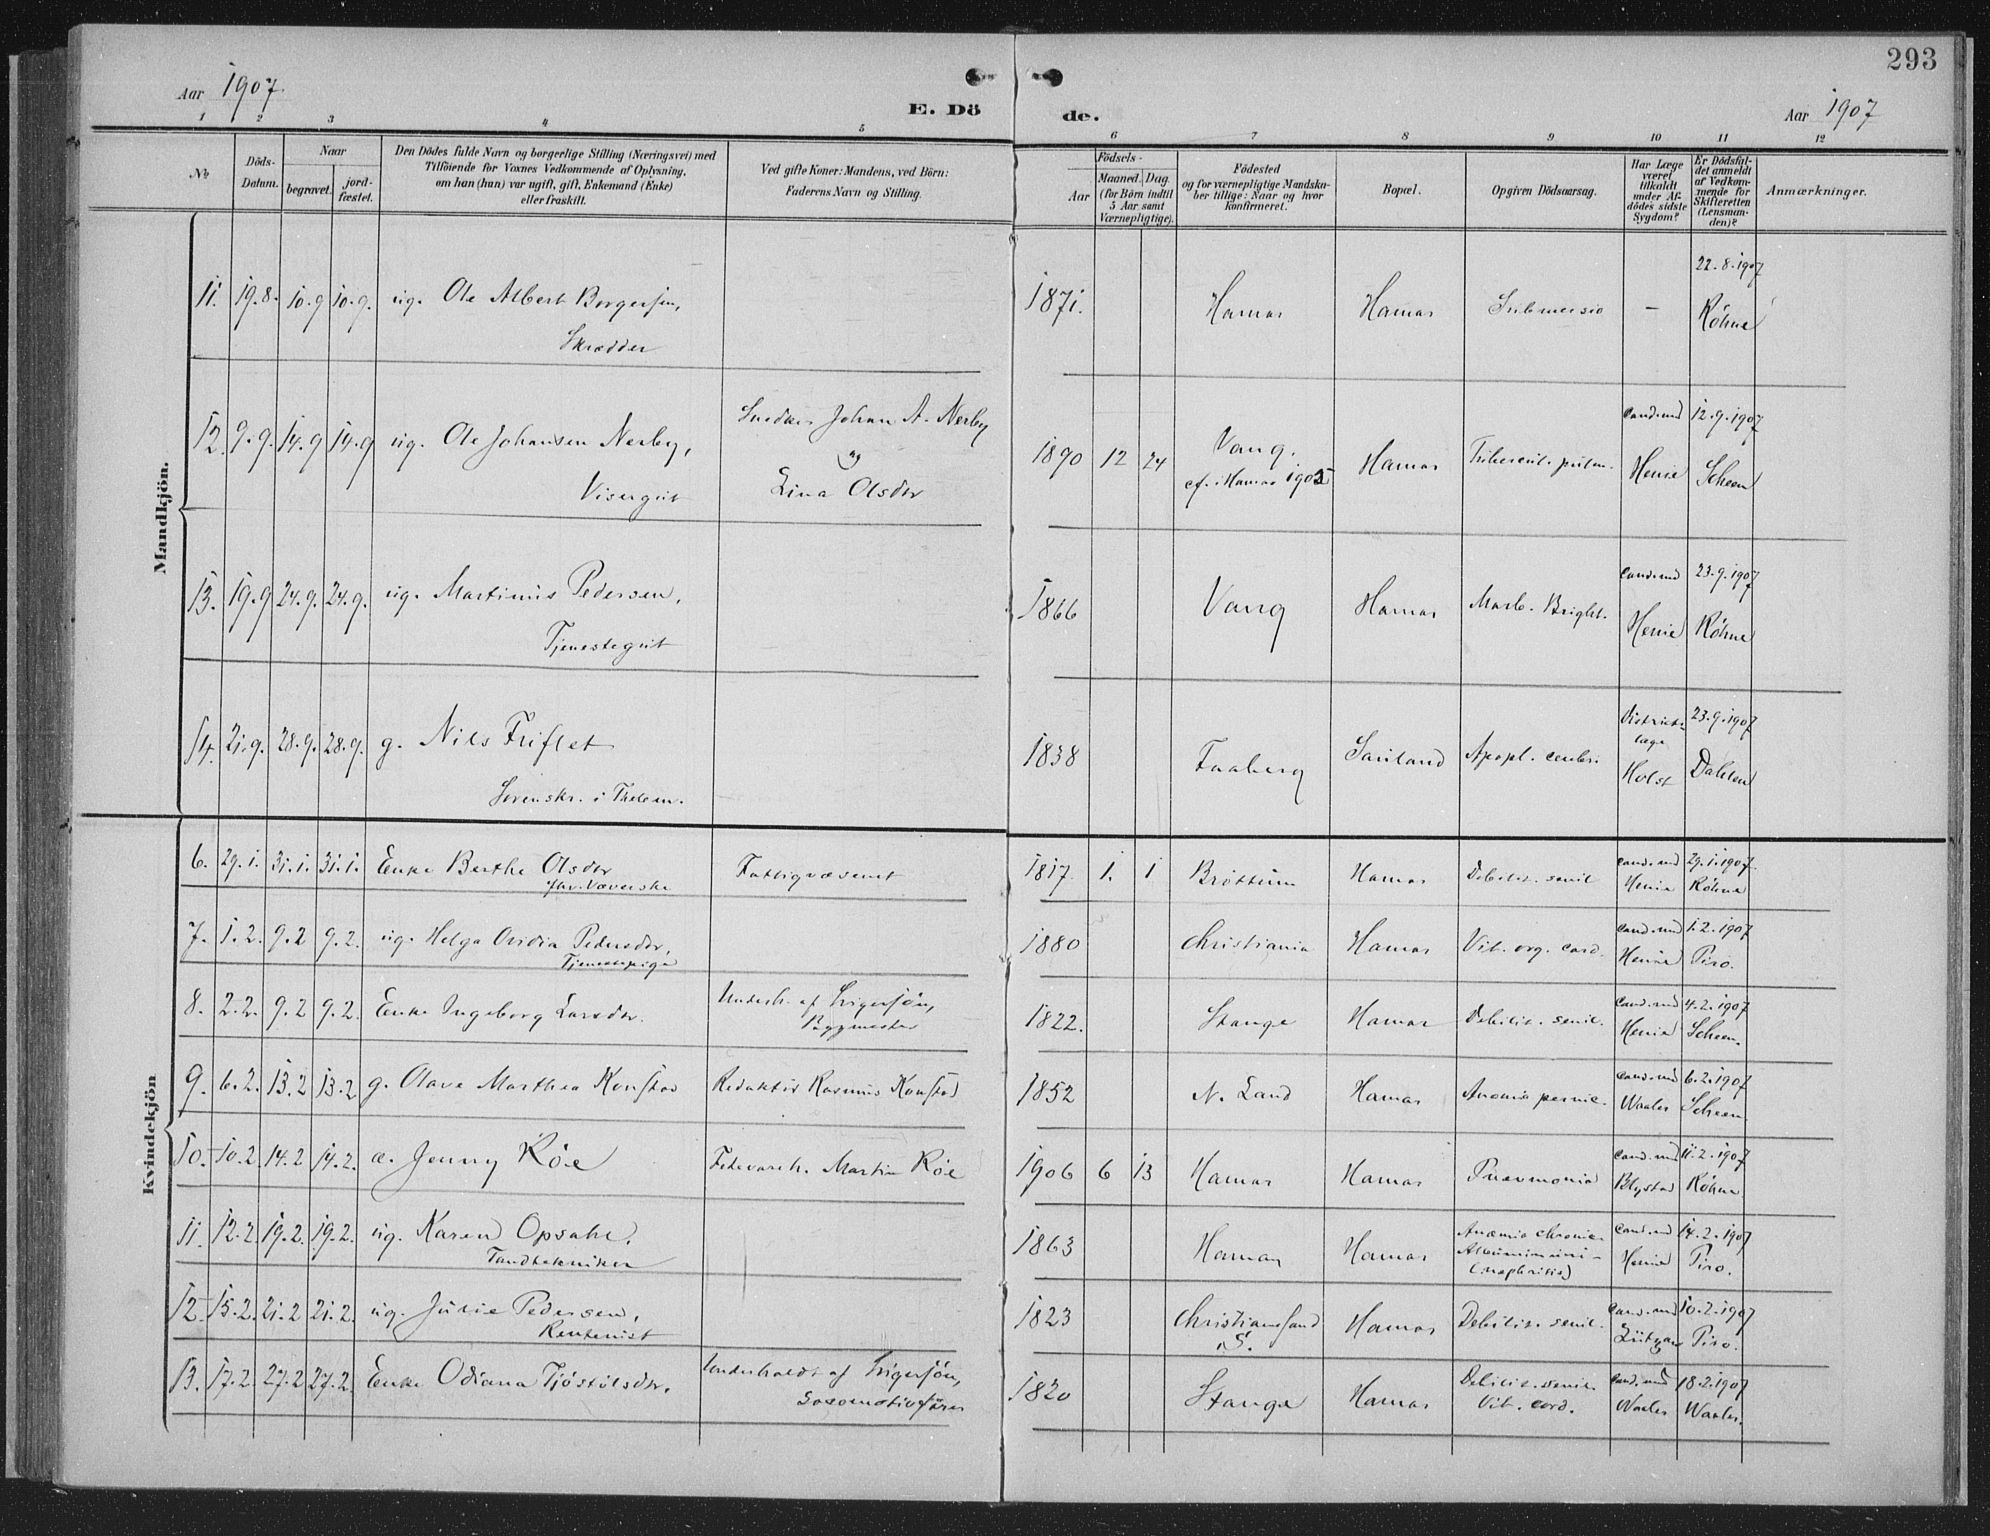 293
Aar 1907
E. Dö
de.
Aar 1907
1 2 3 4 5
6 7 8 9 10 11 12
No
Döds-
Datum.
Naar
begravet.
jord-
fæstet.
Den Dödes fulde Navn og borgerlige Stilling (Næringsvei) med
Tilföiende for Voxnes Vedkommende af Oplysning,
om han (hun) var ugift, gift, Enkemand (Enke)
eller fraskilt.
Ved gifte Koner: Mandens, ved Börn:
Faderens Navn og Stilling.
Födsels-
Aar
Maaned. Dag.
(for Börn indtil
5 Aar samt
Værnepligtige).
Födested
og for værnepligtige Mandska-
ber tillige: Naar og hvor
konfirmeret.
Bopæl.
Opgiven Dödsaarsag.
Har Læge
været
tilkaldt
under Af-
dödes sidste
Sygdom?
Er Dödsfal-
det anmeldt
af Vedkom-
mende for
Skifteretten
(Lensman-
den)?
Anmærkninger.
Mandkjön.
11. 19.8. 10.9 10.9. ug. Ole Albert Borgersen,
Skrædder
1871. Hamar Hamar Submersio –
22.8.1907
Röhne
12. 9.9. 14.9 14.9 ug. Ole Johansen Nerby,
Visergut
Snedker Johan A. Nerby
og
Lina Olsdtr
1890 12 24 Vang.
cf. i Hamar 1905
Hamar Tubercul. pulm.
cand.med
Henie
12.9.1907
Scheen
13. 19.9 24.9. 24.9. ug. Martinus Pedersen,
Tjenestegut
1866 Vang Hamar Morb. Bright.
cand.med
Henie
23.9.1907
Röhne
14. 21.9. 28.9. 28.9. g. Nils Friflet
Sorenskr. i Thelem.
1838 Faaberg Sauland Apopl. cerebri
Distrikts-
læge
Holst
23.9.1907
Dahlen
Kvindekjön
6. 29.1. 31.1. 31.1. Enke Berthe Olsdtr
fhv. Væverske
Fattigvæsenet
1817 1. 1 Bröttum Hamar Debilit. senil
cand.med
Henie
29.1.1907
Röhne
7. 1.2. 9.2 9.2. ug. Helga Ovidia Pedersdtr,
Tjenestepige
1880 Christiania Hamar Vit. org. card.
cand.med
Henie
1.2.1907
Piro.
8. 2.2. 9.2 9.2. Enke Ingeborg Larsdtr.
Underh. af Svigersön,
Byggmester
1822. Stange Hamar Debilit. senil.
cand.med
Henie
4.2.1907
Scheen.
9. 6.2. 13.2 13.2 g. Olave Marthea Konstad
Redaktör Rasmus Konstad
1852 N. Land Hamar Anæmia pernic.
cand.med
Waaler
6.2.1907
Scheen
10. 10.2. 14.2 14.2. æ. Jenny Röe
Fedevareh. Martin Röe
1906 6 13 Hamar Hamar Pneumonia
cand.med
Blystad
11.2.1907
Röhne
11. 12.2 19.2. 19.2. ug. Karen Opsahl,
Tandtekniker
1863 Hamar Hamar
Anæmia chronic.
Albuminuri-
(nephritis)
cand.med
Henie
14.2.1907
Piro.
12. 15.2. 21.2 21.2. ug. Julie Pedersen,
Rentenist
1823 Christianssand
S.
Hamar Debilit. senil.
cand.med
Lützow
10.2.1907
Piro.
13. 17.2. 27.2 27.2. Enke Odiana Tjöstolsdtr.
Underholdt af Svigersön,
Locomotivförer
1820 Stange Hamar
Debilit. senil.
Vit. cord.
cand.med
Waaler
18.2.1907
Waaler.